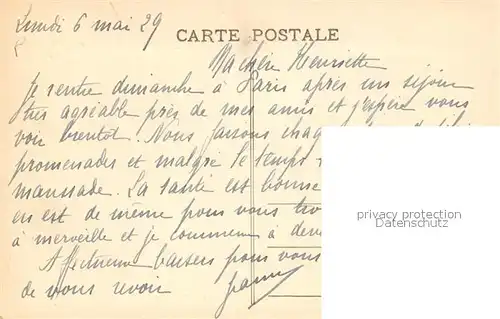 Lundi 6 mai 29
CARTE POSTALE
Ma chère Henriette
Je rentre dimanche à Paris après un séjour
très agréable près de mes amis et j'espère vous
voir bientôt. Nous faisons
promenades et malgré le temps
maussade. La santé est bonne
en est de même pour vous
à merveille et je commence à
privacy protection
Datenschutz
Affectueux baisers pour vous
de vous revoir